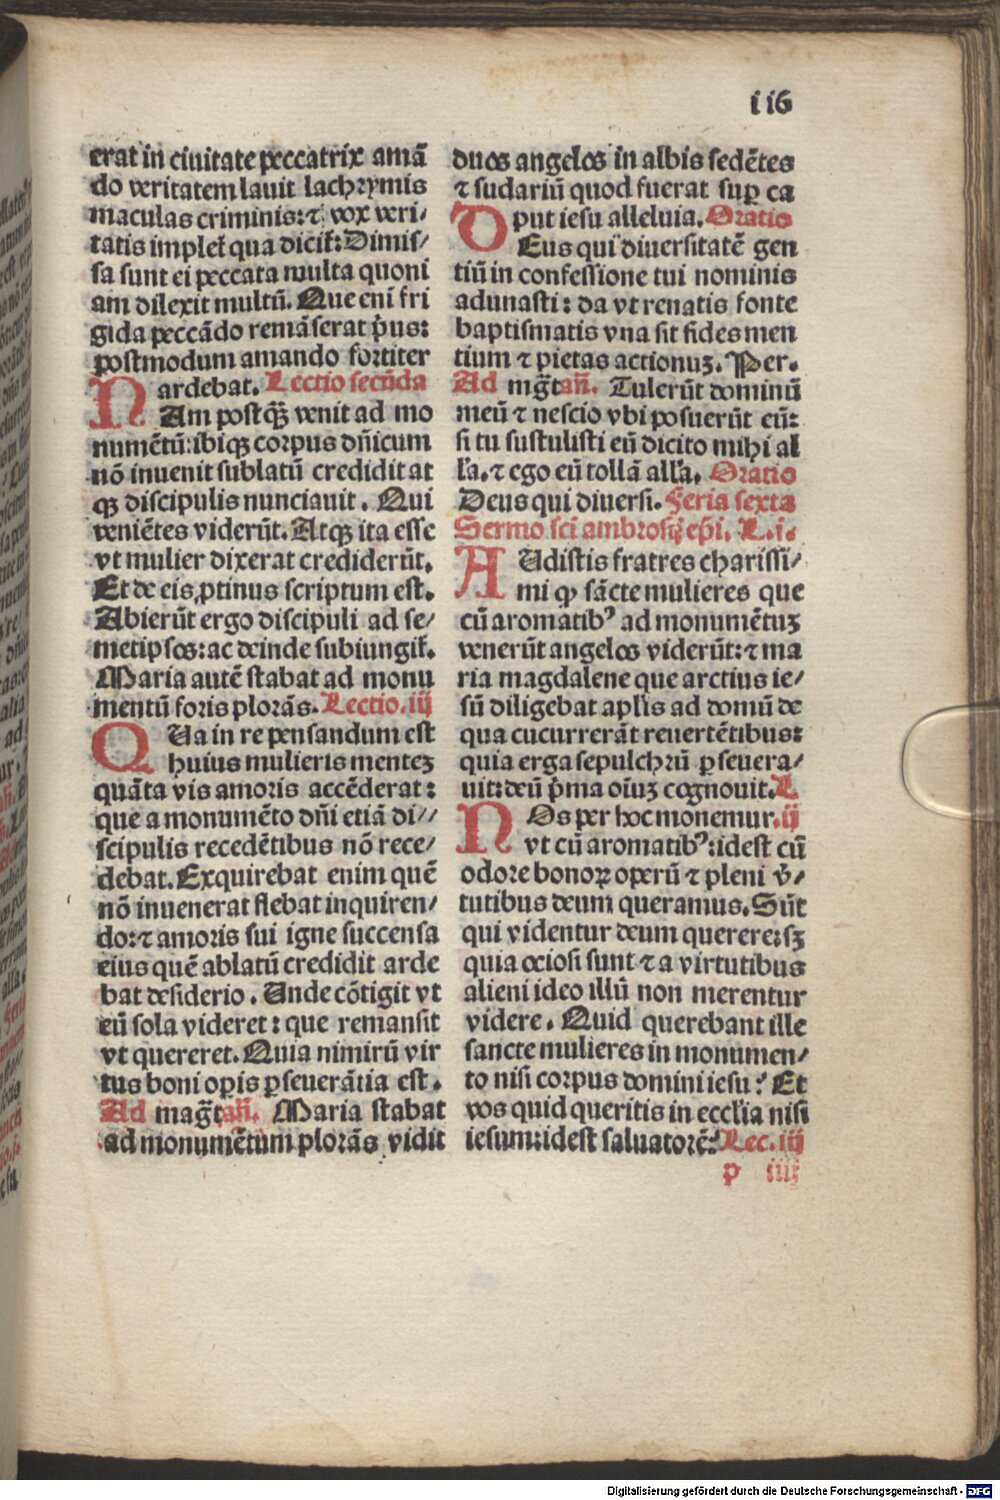 i i6
erat in ciuitate peccatrix amā
do veritatem lauit lachrymis
maculas criminis: ⁊ vox veri/
tatis implet̄ qua dicit̄: Dimis/
sa sunt ei peccata multa quoni
am dilexit multū. Que eni fri
gida peccādo remāserat p̄us:
postmodum amando fortiter
ardebat. Lectio secūda
NAm postq̄ꝫ venit ad mo
numētū: ibiqꝫ corpus dn̄icum
nō inuenit sublatū credidit at
qꝫ discipulis nunciauit. Qui
veniētes viderūt. Atqꝫ ita esse
vt mulier dixerat crediderūt.
Et de eis ꝓtinus scriptum est.
Abierūt ergo discipuli ad se/
metipsos: ac deinde subiungit̄.
Maria autē stabat ad monu
mentū foris plorās. Lectio. iij
QUa in re pensandum est
huius mulieris menteꝫ
quāta vis amoris accēderat:
que a monumēto dn̄i etiā di//
scipulis recedētibus nō rece/
debat. Exquirebat enim quē
nō inuenerat flebat inquiren/
do: ⁊ amoris sui igne succensa
eius quē ablatū credidit arde
bat desiderio. Unde cōtigit vt
eū sola videret: que remansit
vt quereret. Quia nimirū vir
tus boni oꝑis ꝑseuerātia est.
Ad mag̅t an̄. Maria stabat
ad monumētum plorās vidit
duos angelos in albis sedētes
⁊ sudariū quod fuerat suꝑ ca
put iesu alleluia. Oratio
DEus qui diuersitatē gen
tiū in confessione tui nominis
adunasti: da vt renatis fonte
baptismatis vna sit fides men
tium ⁊ pietas actionuꝫ. Per.
Ad mag̅t an̄. Tulerūt dominū
meū ⁊ nescio vbi posuerūt eū:
si tu sustulisti eū dicito mihi al
l'a. ⁊ ego eū tollā all'a. Oratio
Deus qui diuersi. Feria sexta
Sermo sci ambrosij ep̄i. L. i.
AUdistis fratres charissi/
mi ꝙ sācte mulieres que
cū aromatibꝰ ad monumētuꝫ
venerūt angelos viderūt: ⁊ ma
ria magdalene que arctius ie/
sū diligebat apl̄is ad domū de
qua cucurrerāt reuertētibus:
quia erga sepulchrū ꝑseuera/
uit: deū p̄ma oīuꝫ cognouit. L
NOs per hoc monemur. ij
vt cū aromatibꝰ: idest cū
odore bonoꝝ operū ⁊ pleni v̄/
tutibus deum queramus. Sūt
qui videntur deum querere: sꝫ
quia ociosi sunt ⁊ a virtutibus
alieni ideo illū non merentur
videre. Quid querebant ille
sancte mulieres in monumen/
to nisi corpus domini iesu? Et
vos quid queritis in eccl'ia nisi
iesum: idest saluatorē? Lec. iij
p iiij
Digitalisierung gefördert durch die Deutsche Forschungsgemeinschaft - DFG